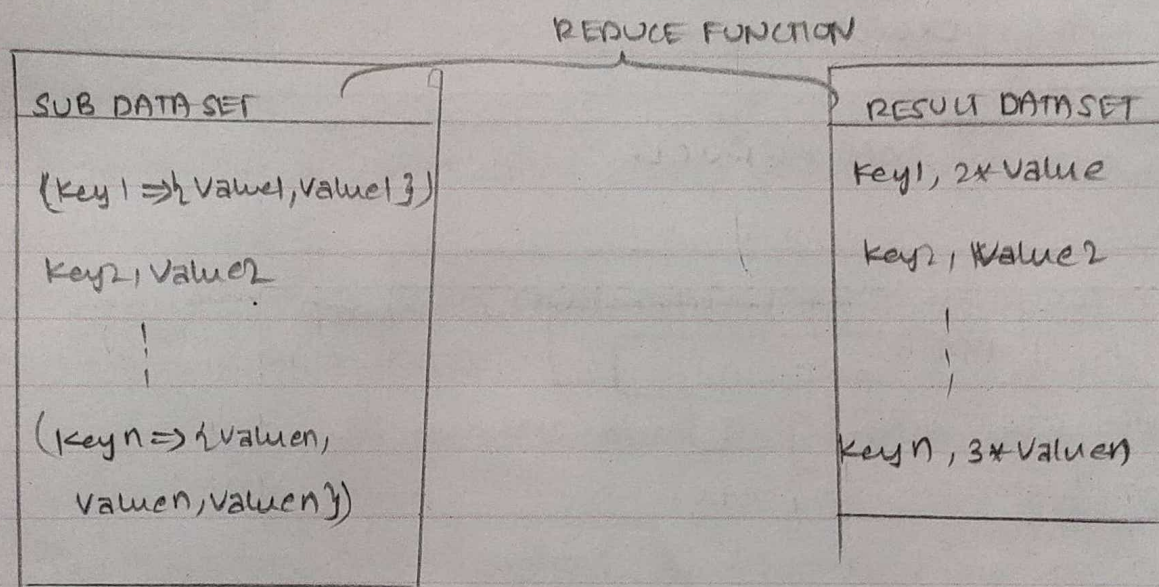 REDUCE FUNCTION
SUB DATA SET
(Key 1 => {Value1, Value1})
Key2, Value2
(Key n => {valuen,
valuen, valuen})
RESULT DATASET
Key1, 2* Value
Key2, Value2
Key n, 3* Valuen